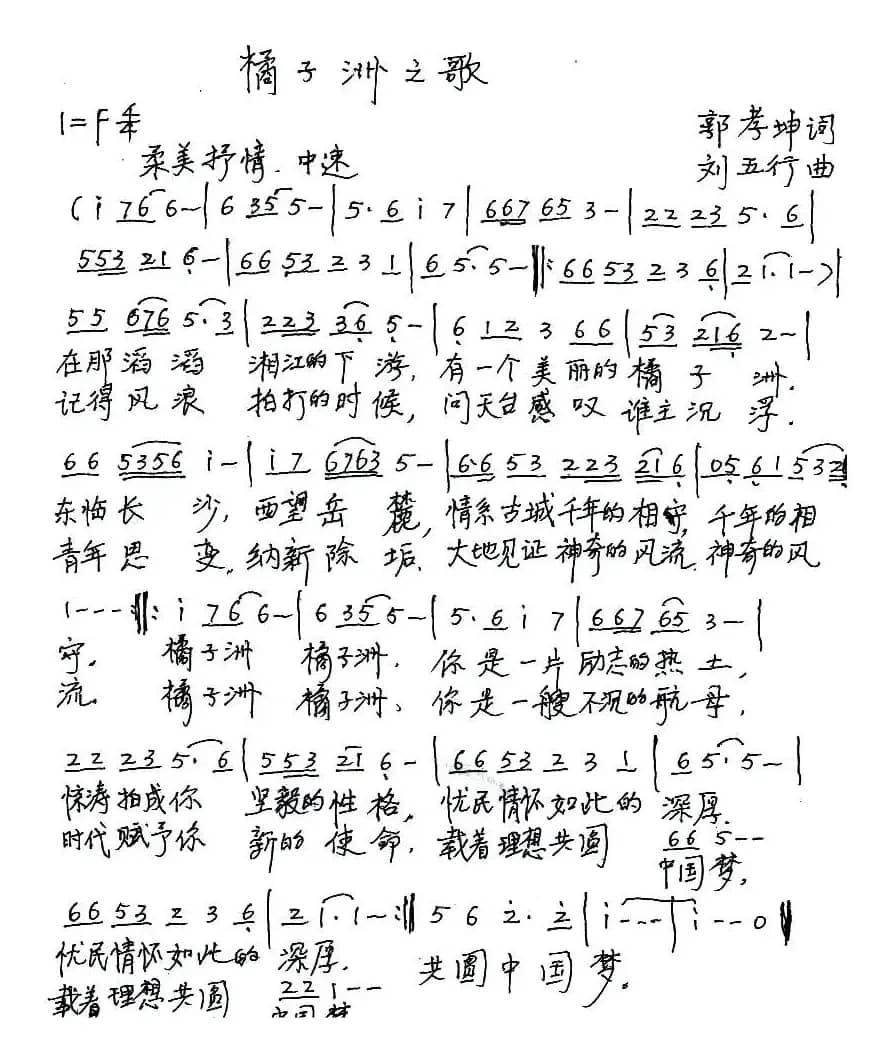 橘子洲之歌
1=F 4/4
郭孝坤词
柔美抒情.中速
刘五行曲
(i 76 6-|6 35 5-|5. 6 i 7|667 65 3-|22 23 5. 6|
553 21 6-|66 53 2 3 1|6 5. 5-‖:66 53 2 3 6|2 1. 1-)|
55 676 5. 3|223 36 5-|6 12 3 66|53 216 2-|
在那滔滔 湘江的下游,有一个美丽的橘子洲.
记得风浪 拍打的时候,问天台感叹谁主沉浮.
66 5356 i-|i7 6763 5-|6.6 53 223 216|05 61 532|
东临长沙,西望岳麓,情系古城千年的相守,千年的相
青年思变,纳新除垢.大地见证神奇的风流.神奇的风
1---:‖:i 76 6-|6 35 5-|5. 6 i 7|667 65 3-|
守。橘子洲 橘子洲.你是一片励志的热土,
流。橘子洲 橘子洲、你是一艘不沉的航母,
22 23 5. 6|553 21 6-|66 53 2 3 1|6 5. 5-|
惊涛拍成你 坚毅的性格,忧民情怀如此的深厚.
时代赋予你 新的使命,载着理想共圆 66 5--
中国梦,
66 53 2 3 6|2 1. 1-:‖ 5 6 2. 2|i---|i--0‖
忧民情怀如此的深厚.共圆中国梦。
载着理想共圆 22 1--
中国梦